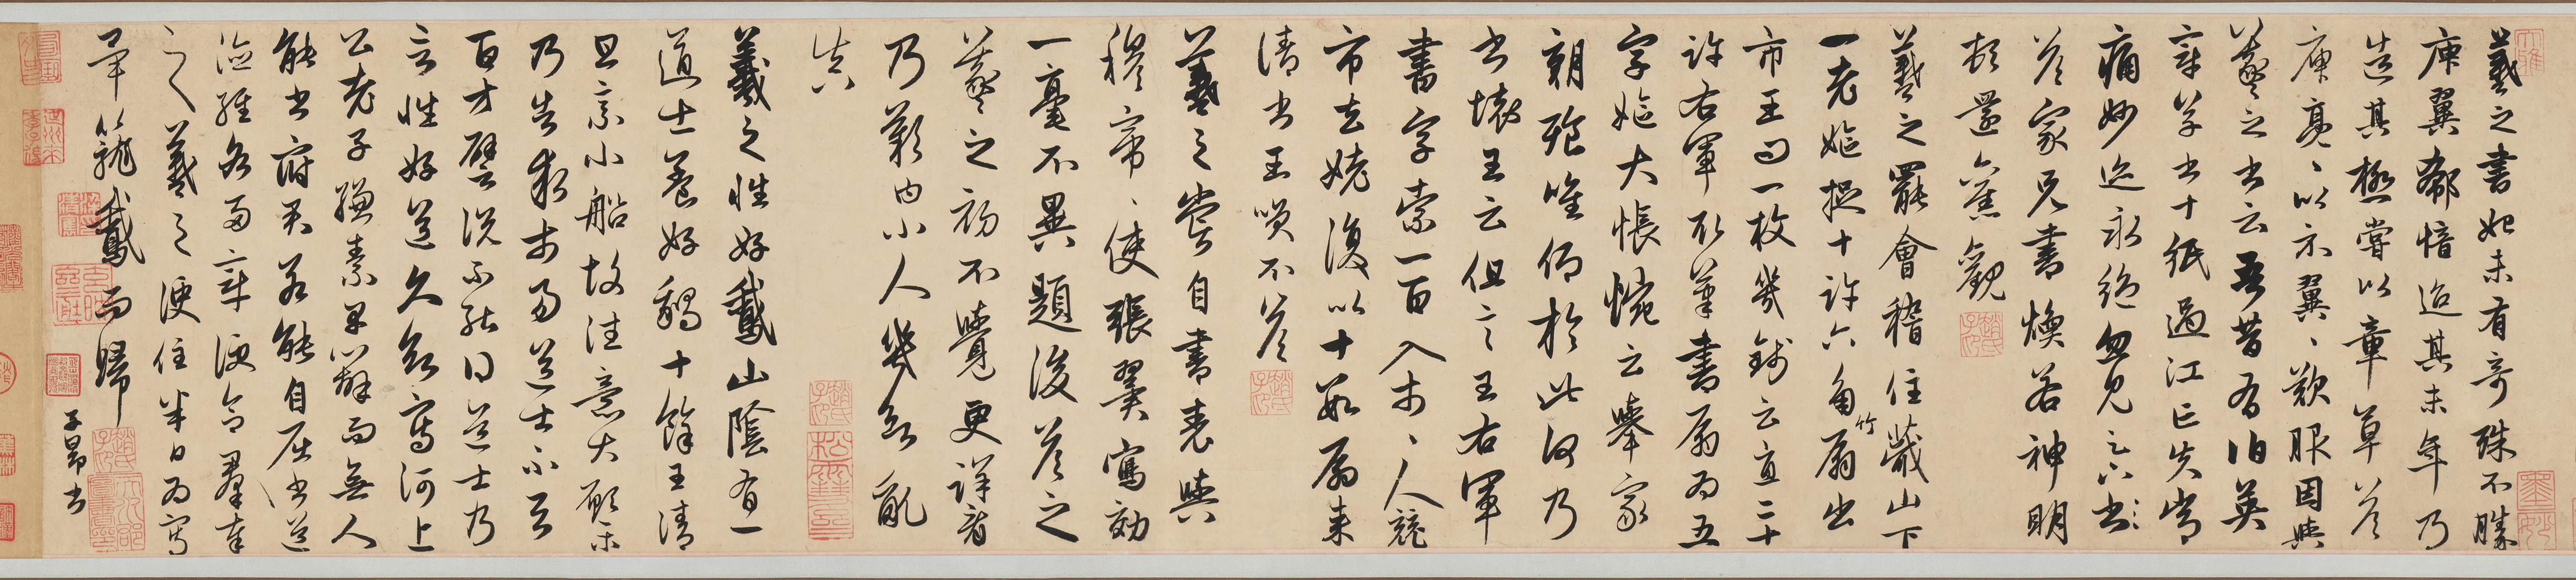 羲之書始未有奇殊不勝
庾翼郗愔迨其末年乃
造其極嘗以章草答
庾亮、以示翼、歎服因與
羲之書云吾昔有伯英
章草書十紙過江亡失常
痛妙迹永絕忽見足下書
答家兄書煥若神明
頓還舊觀
羲之罷會稽住蕺山下
一老嫗捉十許六角竹扇出
市王曰一枚幾錢云直二十
許右軍取筆書扇為五
字嫗大悵惋云舉家
朝飱唯仰於此何乃
書壞王云但言王右軍
書字索一百入市、人競
市去姥復以十數扇來
請書王笑不答
羲之嘗自書表與
穆帝、使張翼寫効
一毫不異題後答之
羲之初不覺更詳看
乃歎曰小人幾欲亂
真
羲之性好鵝山陰有一
道士養好鵝十餘王清
旦乘小船故往意大願樂
乃告求市易道士不與
百方譬說不能得道士乃
言性好道久欲寫河上
公老子縑素早辦而無人
能書府君若能自屈書道
德經各兩章便合羣奉
之羲之便住半日為寫
畢籠鵝而歸
子昂書
趙氏子昂
松雪齋